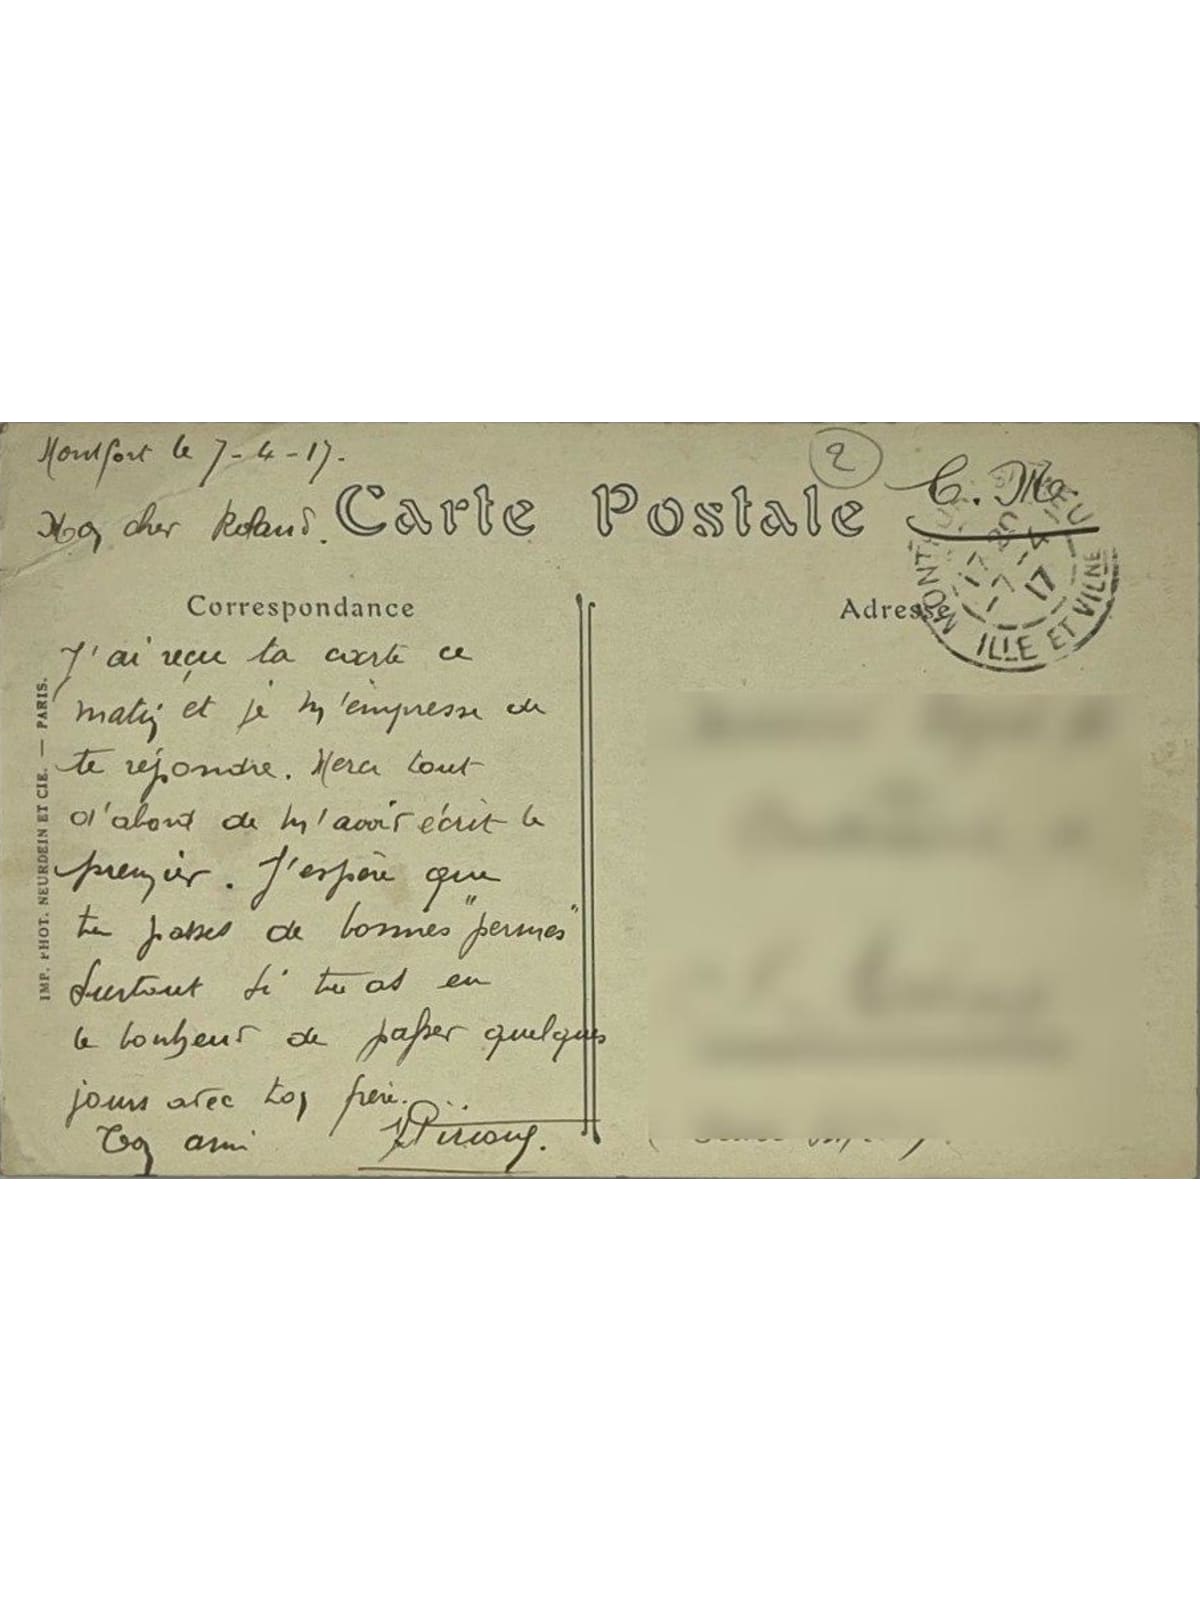 Montfort le 7-4-17.
2
C. M.
Mon cher Roland.
Carte Postale
MONTFORT
17 30
7-4
17
ILLE ET VILNE
Correspondance
Adresse
J'ai reçu ta carte ce
matin et je m'empresse de
te répondre. Merci tout
d'abord de m'avoir écrit le
premier. J'espère que
tu passes de bonnes "permes"
Surtout si tu as eu
le bonheur de passer quelques
jours avec ton frère...
Ton ami
IMP. PHOT. NEURDEIN ET CIE. — PARIS.